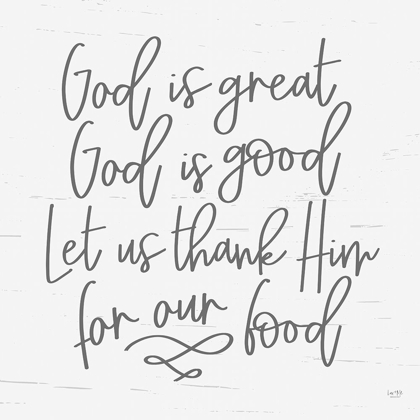 God is great
God is good
Let us thank Him
for our food